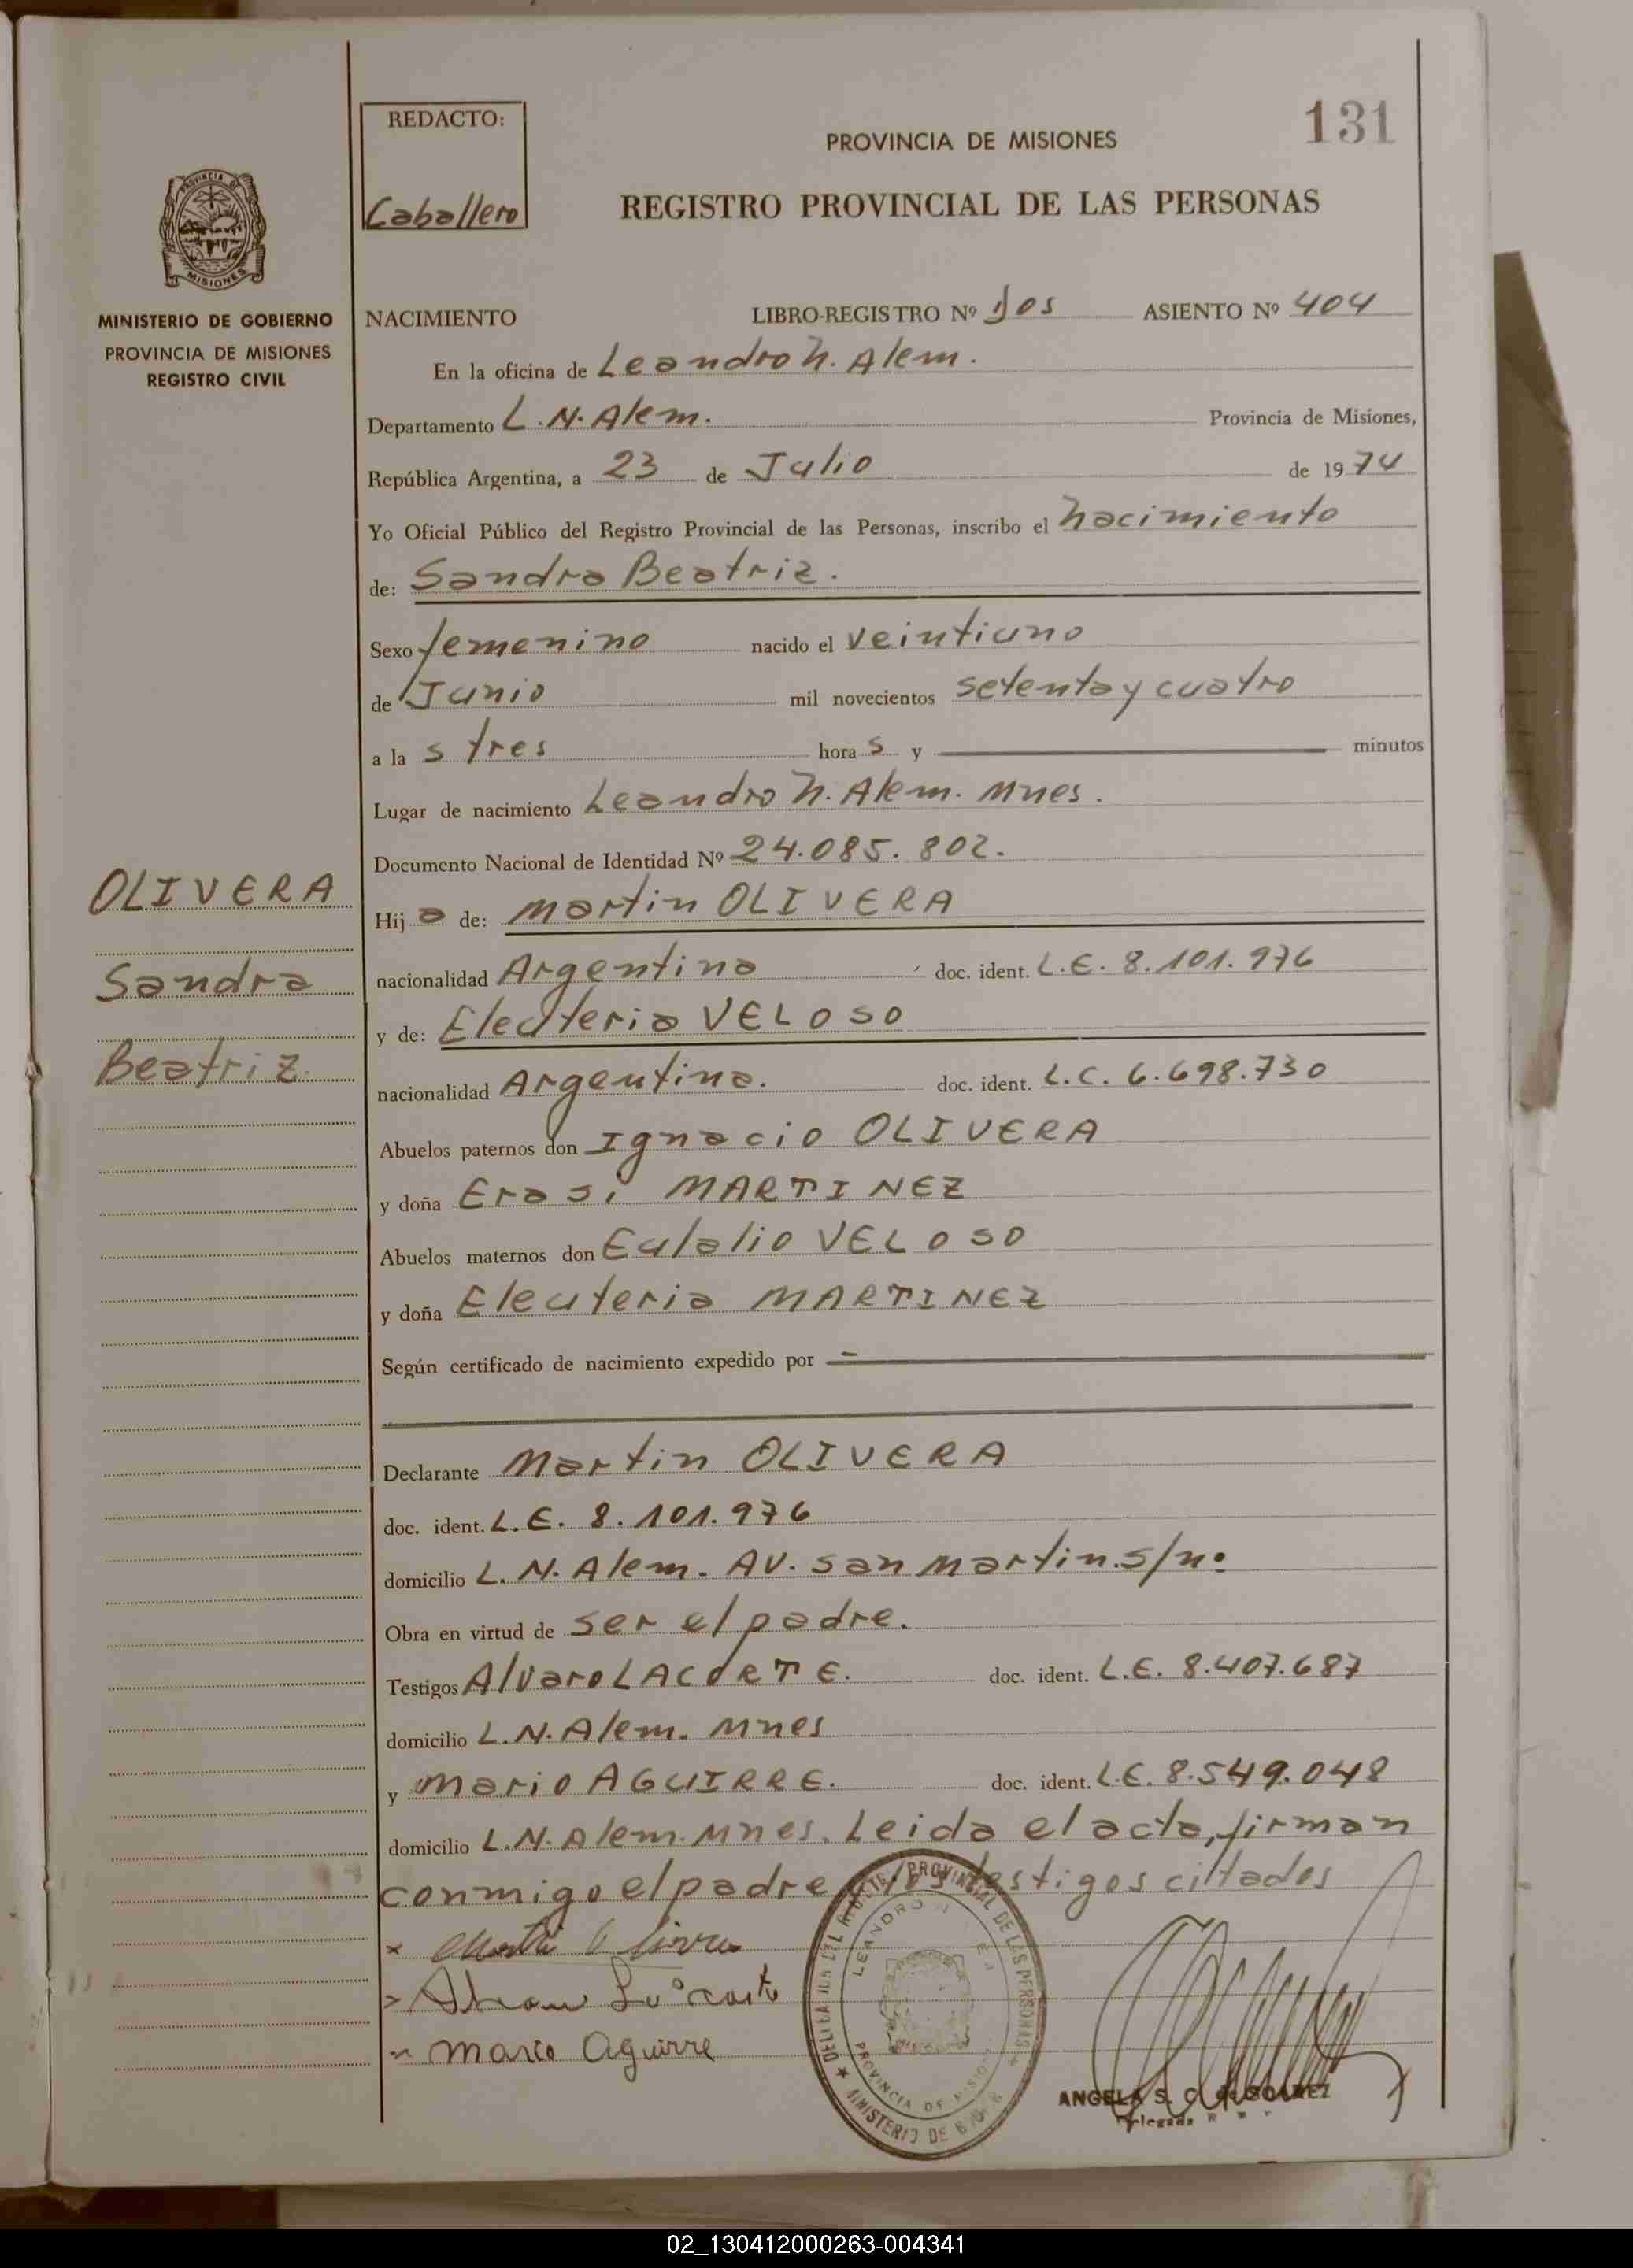 131
REDACTO:
Caballero
PROVINCIA DE MISIONES
REGISTRO PROVINCIAL DE LAS PERSONAS
PROVINCIA DE
MISIONES
MINISTERIO DE GOBIERNO
PROVINCIA DE MISIONES
REGISTRO CIVIL
NACIMIENTO LIBRO-REGISTRO Nº Dos ASIENTO Nº 404
En la oficina de Leandro N. Alem.
Departamento L.N. Alem. Provincia de Misiones,
República Argentina, a 23 de Julio de 1974
Yo Oficial Público del Registro Provincial de las Personas, inscribo el nacimiento
de: Sandra Beatriz.
Sexo femenino nacido el veintiuno
de Junio mil novecientos setenta y cuatro
a la s tres hora s y minutos
Lugar de nacimiento Leandro N. Alem. Mnes.
Documento Nacional de Identidad Nº 24.085.802.
OLIVERA
Sandra
Beatriz
Hij a de: Martin OLIVERA
nacionalidad Argentina doc. ident. L.E. 8.101.976
y de: Eleuteria VELOSO
nacionalidad Argentina. doc. ident. L.C. 6.698.730
Abuelos paternos don Ignacio OLIVERA
y doña Erasi MARTINEZ
Abuelos maternos don Eulalio VELOSO
y doña Eleuteria MARTINEZ
Según certificado de nacimiento expedido por
Declarante Martin OLIVERA
doc. ident. L.E. 8.101.976
domicilio L.N. Alem. AV. San Martin. s/nº
Obra en virtud de ser el padre.
Testigos Alvaro LACORTE. doc. ident. L.E. 8.407.687
domicilio L.N. Alem. Mnes
y Mario AGUIRRE. doc. ident. L.E. 8.549.048
domicilio L.N. Alem. Mnes. Leida el acta, firman
conmigo el padre y los testigos cittados
Mario Aguirre
PROVINCIAL DE LAS PERSONAS
LEANDRO
PROVINCIA DE MISIONES
MINISTERIO DE
ANGELA S. C. de
02_130412000263-004341